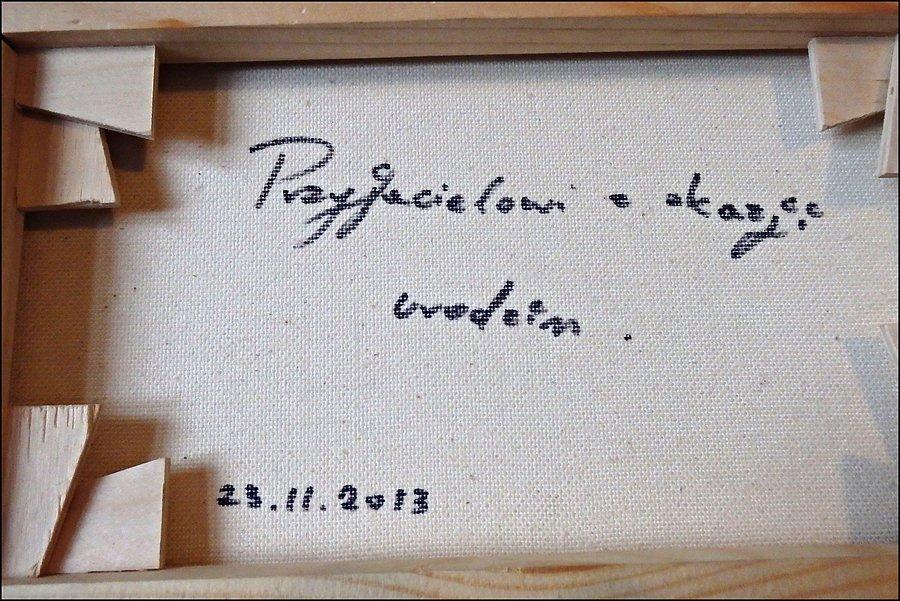 Przyjacielowi z okazji
urodzin.
23.11.2013